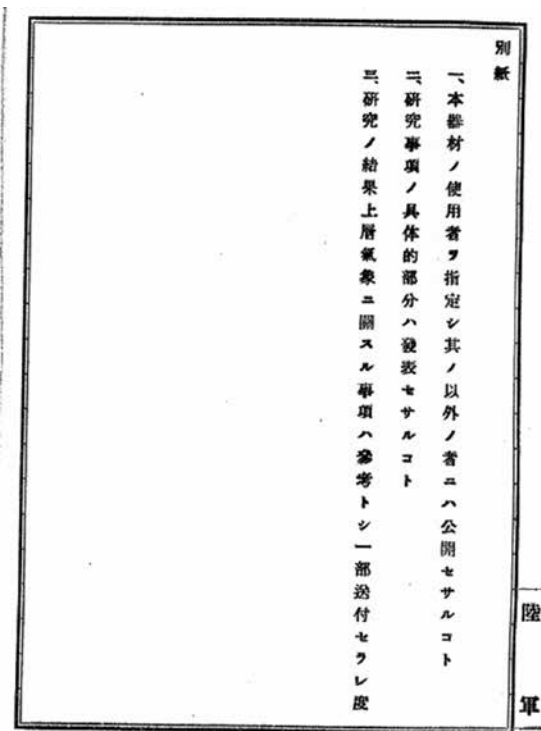 別紙
一、本器材ノ使用者ヲ指定シ其ノ以外ノ者ニハ公開セサルコト
二、研究事項ノ具体的部分ハ發表セサルコト
三、研究ノ結果上層氣象ニ關スル事項ハ參考トシ一部送付セラレ度
陸軍